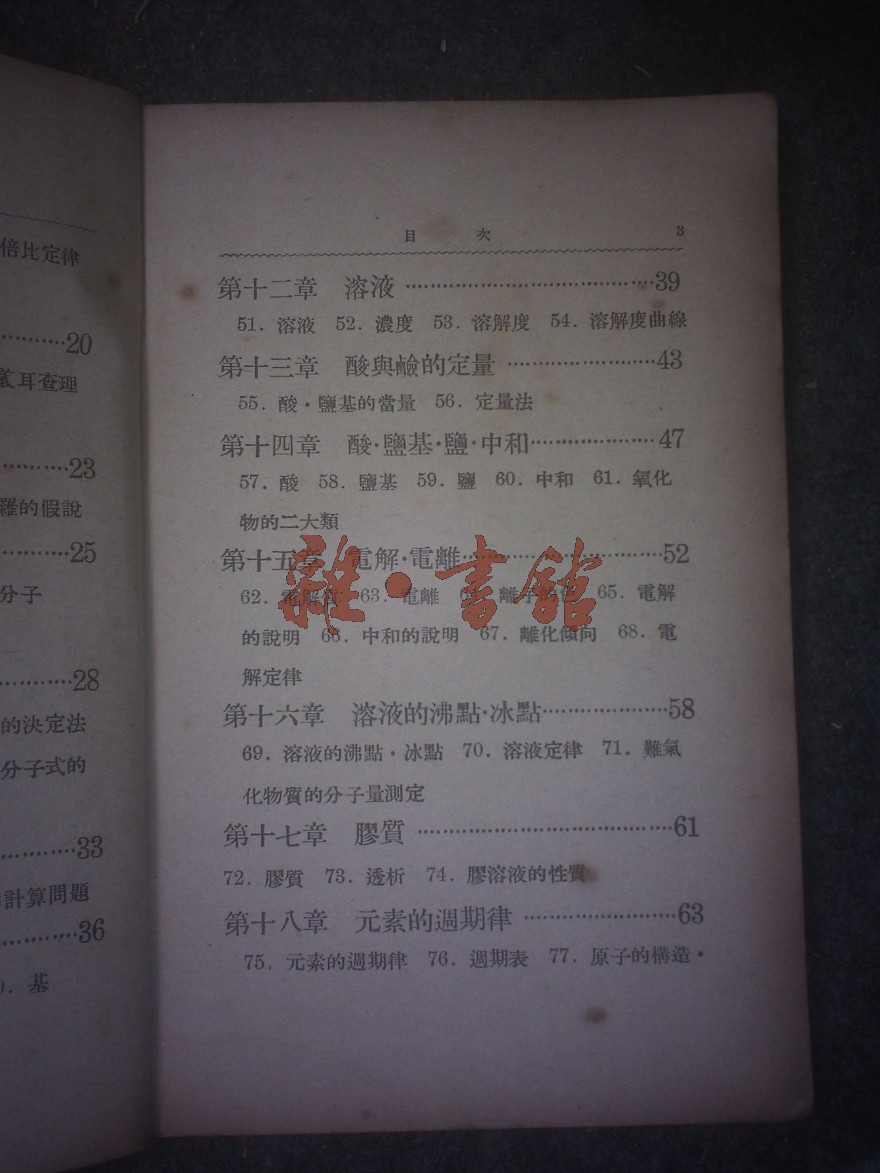 倍比定律
………20
耳查理
………23
羅的假說
………25
分子
………28
的決定法
分子式的
………33
計算問題
………36
基
目 次 3
第十二章 溶液………39
51. 溶液 52. 濃度 53. 溶解度 54. 溶解度曲線
第十三章 酸與鹼的定量………43
55. 酸·鹽基的當量 56. 定量法
第十四章 酸·鹽基·鹽·中和………47
57. 酸 58. 鹽基 59. 鹽 60. 中和 61. 氧化
物的二大類
第十五章 電解·電離………52
62. 電解質 63. 電離 64. 離子的色 65. 電解
的說明 66. 中和的說明 67. 離化傾向 68. 電
解定律
第十六章 溶液的沸點·冰點………58
69. 溶液的沸點·冰點 70. 溶液定律 71. 難氣
化物質的分子量測定
第十七章 膠質………61
72. 膠質 73. 透析 74. 膠溶液的性質
第十八章 元素的週期律………63
75. 元素的週期律 76. 週期表 77. 原子的構造·
雜·書館